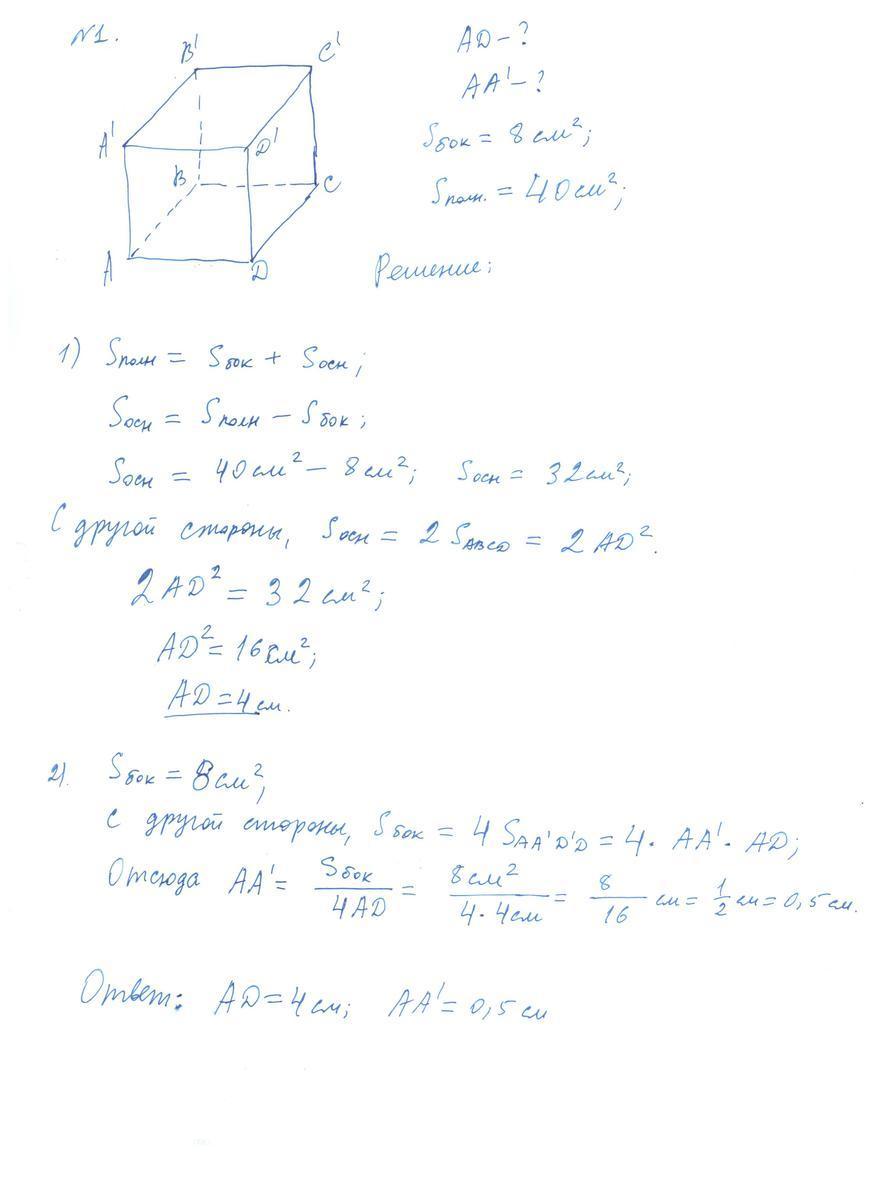 №1.
B' C'
A' D'
B C
A D
AD - ?
AA' - ?
Sбок = 8 см²;
Sполн. = 40 см²;
Решение:
1) Sполн = Sбок + Sосн;
Sосн = Sполн - Sбок;
Sосн = 40 см² - 8 см²; Sосн = 32 см²;
С другой стороны, Sосн = 2 SABCD = 2 AD².
2 AD² = 32 см²;
AD² = 16 см²;
AD = 4 см.
2). Sбок = 8 см²,
С другой стороны, Sбок = 4 SAA'D'D = 4 · AA' · AD;
Отсюда AA' = Sбок / 4AD = 8 см² / 4·4 см = 8/16 см = 1/2 см = 0,5 см.
Ответ: AD = 4 см; AA' = 0,5 см